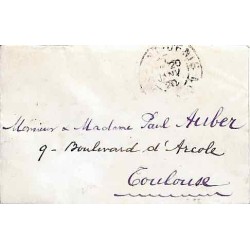 Monsieur & Madame Paul Auber
9 - Boulevard d'Arcole
Toulouse